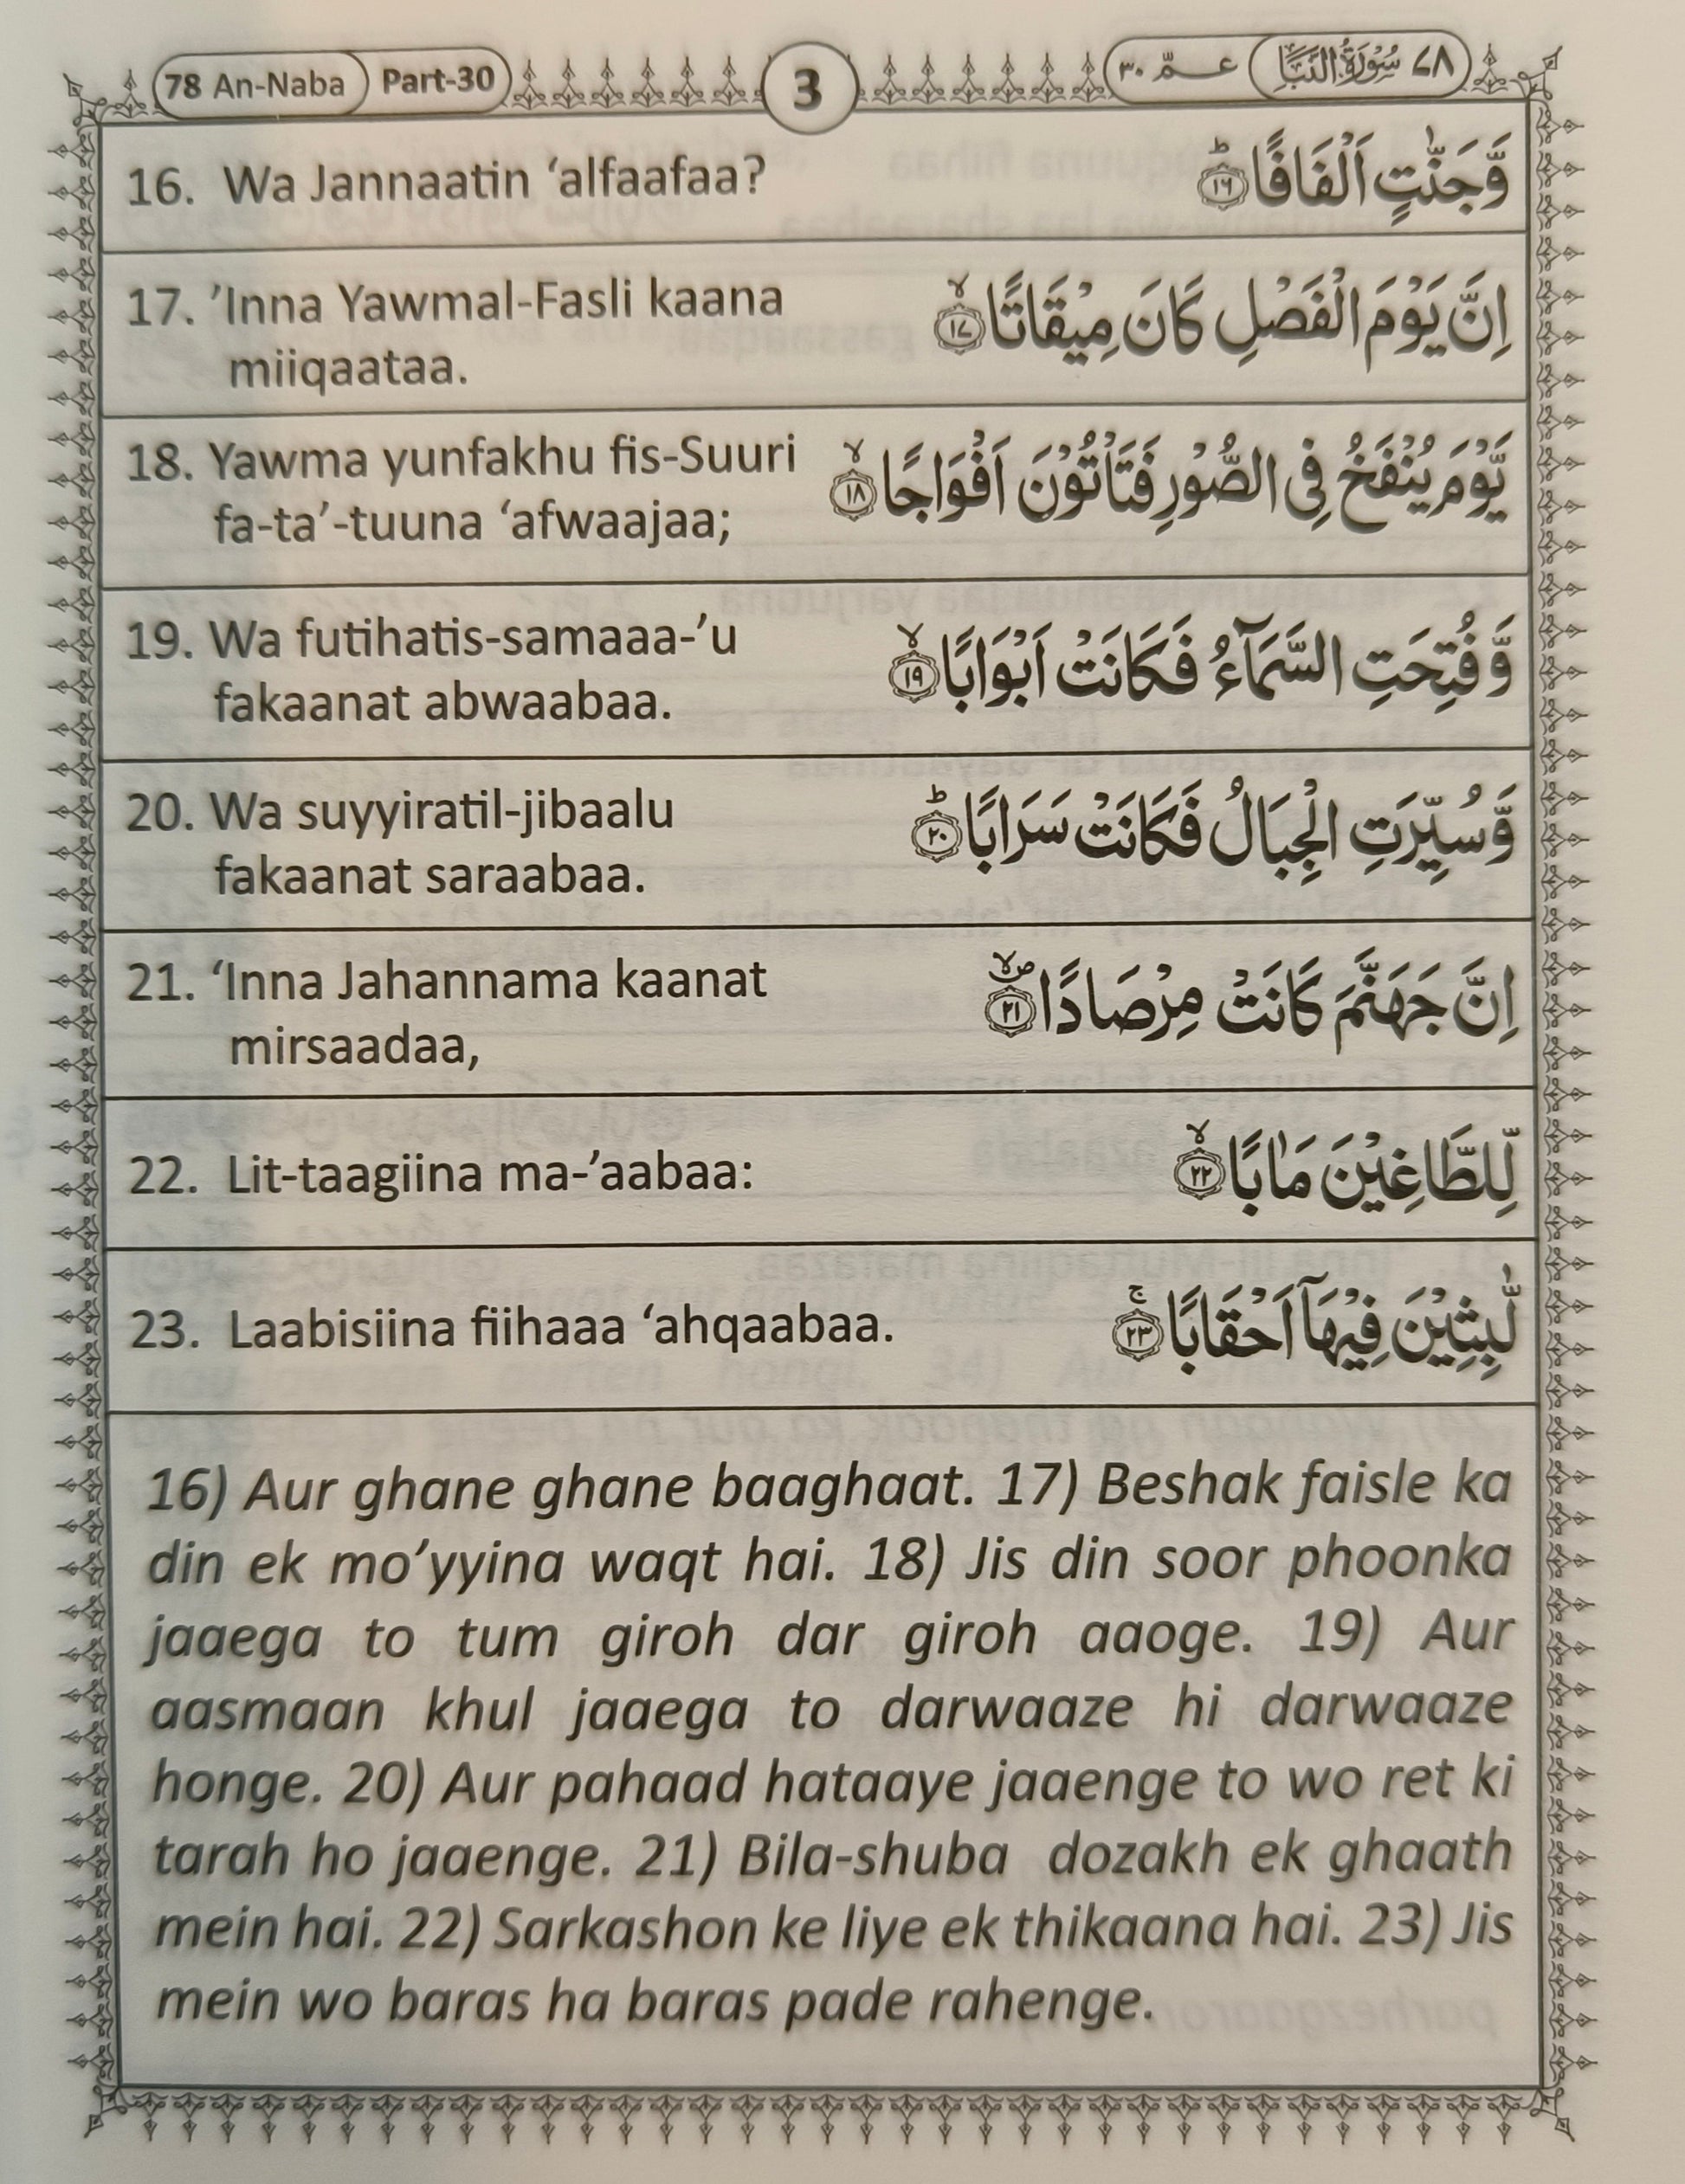 78 An-Naba Part-30 3 عـــمّ ۳۰ سُوۡرَةُ النَّبَاِ ۷۸
16. Wa Jannaatin ‘alfaafaa? وَّجَنّٰتٍ اَلۡفَافًا ؕ‏ ﴿۱۶﴾
17. ’Inna Yawmal-Fasli kaana اِنَّ يَوۡمَ الۡفَصۡلِ كَانَ مِيۡقَاتًا ۙ‏ ﴿۱۷﴾
miiqaataa.
18. Yawma yunfakhu fis-Suuri يَّوۡمَ يُنۡفَخُ فِى الصُّوۡرِ فَتَاۡتُوۡنَ اَفۡوَاجًا ۙ‏ ﴿۱۸﴾
fa-ta’-tuuna ‘afwaajaa;
19. Wa futihatis-samaaa-’u وَّفُتِحَتِ السَّمَآءُ فَكَانَتۡ اَبۡوَابًا ۙ‏ ﴿۱۹﴾
fakaanat abwaabaa.
20. Wa suyyiratil-jibaalu وَّسُيِّرَتِ الۡجِبَالُ فَكَانَتۡ سَرَابًا ؕ‏ ﴿۲۰﴾
fakaanat saraabaa.
21. ‘Inna Jahannama kaanat اِنَّ جَهَنَّمَ كَانَتۡ مِرۡصَادًا ۙ‏ ﴿۲۱﴾
mirsaadaa,
22. Lit-taagiina ma-’aabaa: لِّلطَّاغِيۡنَ مَاٰبًا ۙ‏ ﴿۲۲﴾
23. Laabisiina fiihaaa ‘ahqaabaa. لّٰبِثِيۡنَ فِيۡهَاۤ اَحۡقَابًا ۚ‏ ﴿۲۳﴾
16) Aur ghane ghane baaghaat. 17) Beshak faisle ka
din ek mo’yyina waqt hai. 18) Jis din soor phoonka
jaaega to tum giroh dar giroh aaoge. 19) Aur
aasmaan khul jaaega to darwaaze hi darwaaze
honge. 20) Aur pahaad hataaye jaaenge to wo ret ki
tarah ho jaaenge. 21) Bila-shuba dozakh ek ghaath
mein hai. 22) Sarkashon ke liye ek thikaana hai. 23) Jis
mein wo baras ha baras pade rahenge.